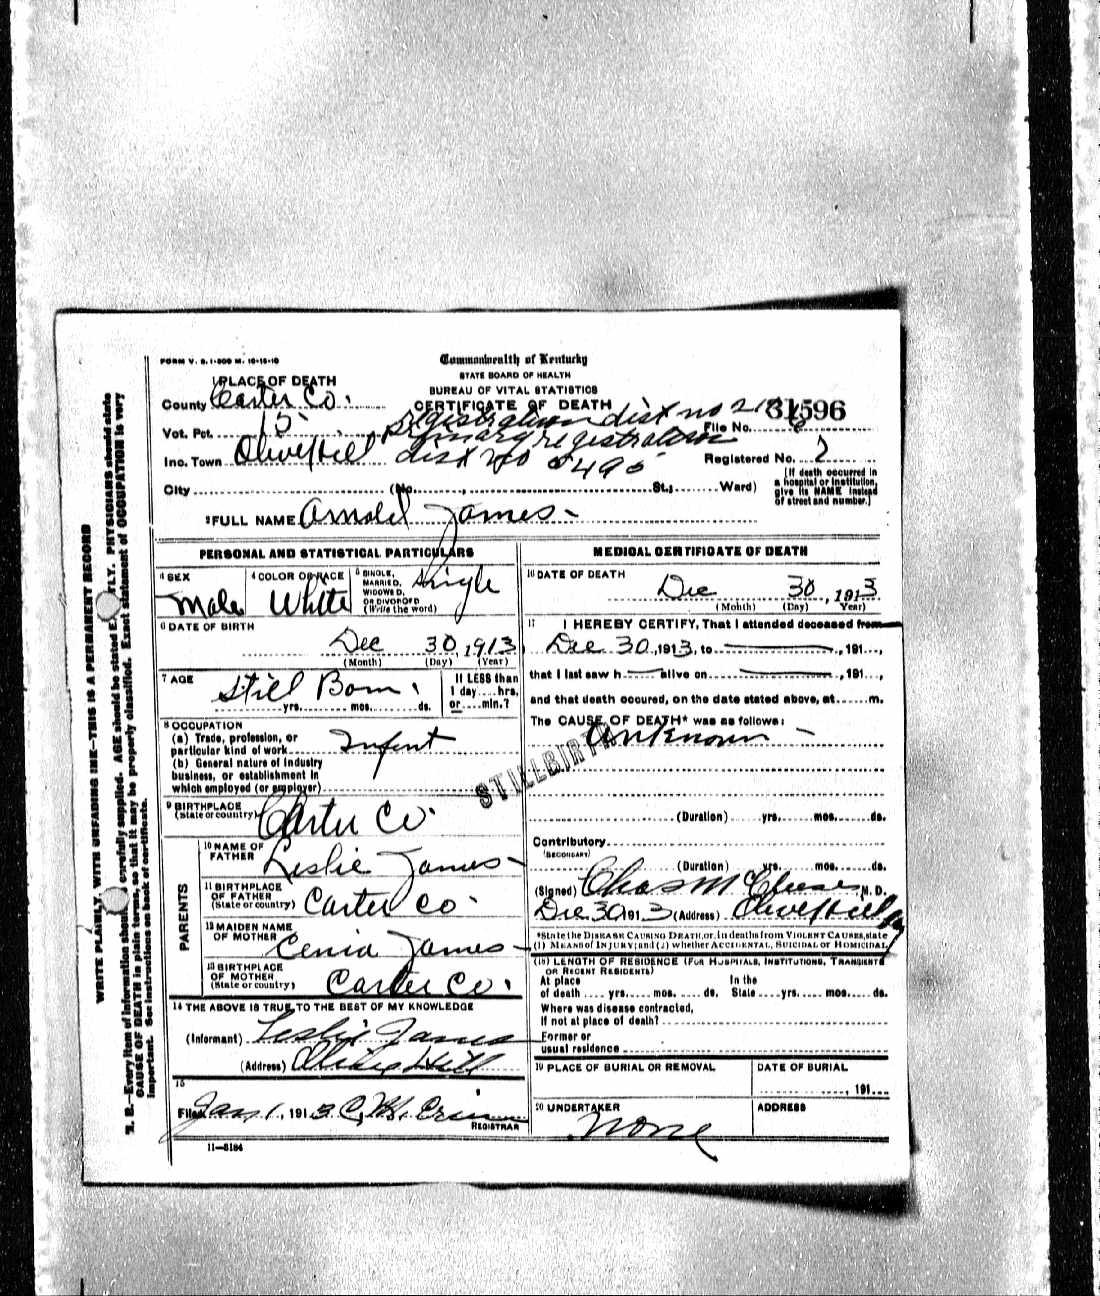 FORM V. S. 1-500 M. 10-15-10
Commonwealth of Kentucky
STATE BOARD OF HEALTH
BUREAU OF VITAL STATISTICS
CERTIFICATE OF DEATH
1 PLACE OF DEATH
County Carter Co.
Vot. Pct. 15
Inc. Town Olive Hill
registration dist no
primary registration
dist no 5495
File No. 31596
Registered No.
City (No. , St.; Ward)
[If death occurred in
a hospital or institution,
give its NAME instead
of street and number.]
2 FULL NAME Arnold James
PERSONAL AND STATISTICAL PARTICULARS
3 SEX Male
4 COLOR OR RACE White
5 SINGLE,
MARRIED,
WIDOWED,
OR DIVORCED
(Write the word)
Single
6 DATE OF BIRTH
Dec 30, 1913
(Month) (Day) (Year)
7 AGE Still Born.
yrs. mos. ds.
If LESS than
1 day hrs.
or min.?
8 OCCUPATION
(a) Trade, profession, or
particular kind of work
Infant
(b) General nature of industry
business, or establishment in
which employed (or employer)
9 BIRTHPLACE
(State or country)
Carter Co.
PARENTS
10 NAME OF
FATHER
Leslie James
11 BIRTHPLACE
OF FATHER
(State or country)
Carter Co
12 MAIDEN NAME
OF MOTHER
Cenia James
13 BIRTHPLACE
OF MOTHER
(State or country)
Carter Co.
14 THE ABOVE IS TRUE TO THE BEST OF MY KNOWLEDGE
(Informant) Leslie James
(Address) Olive Hill
15
Filed Jan 1, 1913
REGISTRAR
11—3184
MEDICAL CERTIFICATE OF DEATH
16 DATE OF DEATH
Dec 30, 1913
(Month) (Day) Year)
17 I HEREBY CERTIFY, That I attended deceased from
Dec 30, 1913, to , 191 ,
that I last saw h alive on , 191 ,
and that death occured, on the date stated above, at m.
The CAUSE OF DEATH* was as follows:
Unknown
STILLBIRTH
(Duration) yrs. mos. ds.
Contributory
(SECONDARY)
(Duration) yrs. mos. ds.
(Signed) Chas M M. D.
Dec 30 1913 (Address) Olive Hill Ky
*State the DISEASE CAUSING DEATH, or, in deaths from VIOLENT CAUSES, state
(1) MEANS OF INJURY; and (2) whether ACCIDENTAL, SUICIDAL OR HOMICIDAL
(18) LENGTH OF RESIDENCE (FOR HOSPITALS, INSTITUTIONS, TRANSIENTS
OR RECENT RESIDENTS)
At place In the
of death yrs. mos. ds. State yrs. mos. ds.
Where was disease contracted,
If not at place of death?
Former or
usual residence
19 PLACE OF BURIAL OR REMOVAL
DATE OF BURIAL
, 191
20 UNDERTAKER
None
ADDRESS
WRITE PLAINLY, WITH UNFADING INK—THIS IS A PERMANENT RECORD
B.—Every item of information should carefully supplied. AGE should be stated PHYSICIANS should state
CAUSE OF DEATH in plain terms, so that it may be properly classified. Exact statement of OCCUPATION is very
important. See instructions on back of certificate.